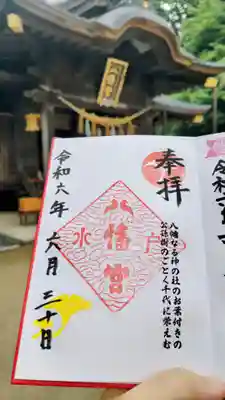 奉拝
八幡なる神の社のお葉付きの
公孫樹のごとく千代に栄えむ
水戸
八幡宮
令和六年
六月
三十日